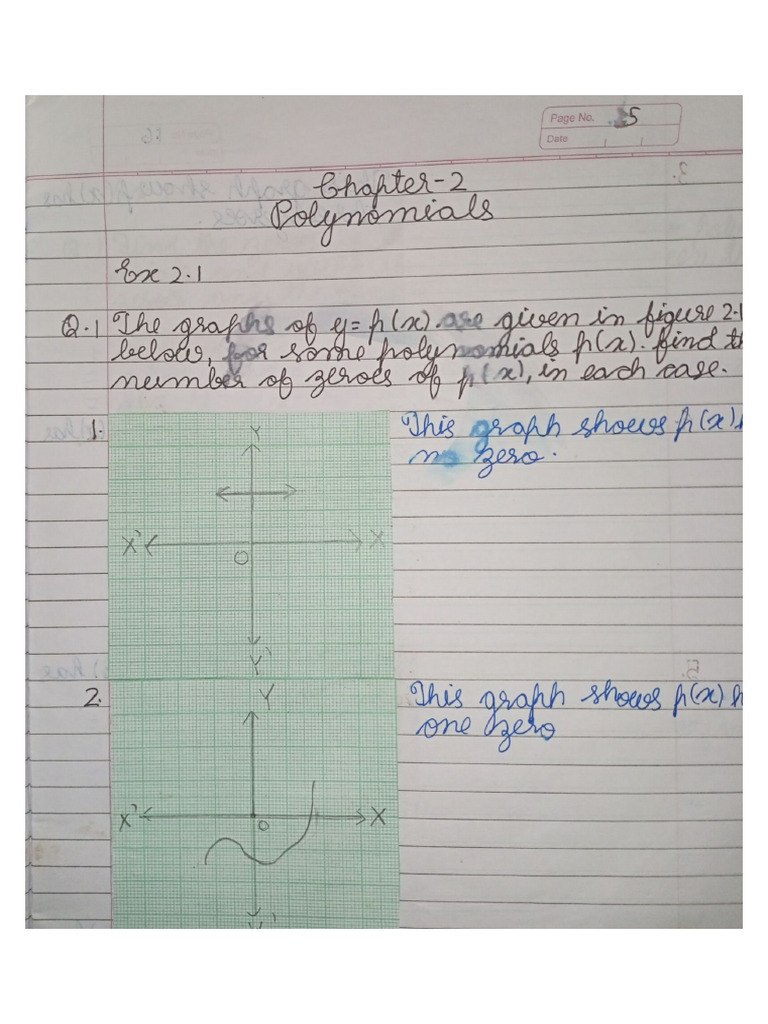 Page No. 5
Date
Chapter-2
Polynomials
Ex 2.1
Q.1 The graphs of y=p(x) are given in figure 2.1
below, for some polynomials p(x). find th
number of zeroes of p(x), in each case.
1. This graph shows p(x) h
no zero.
Y
X' X
O
Y'
2. This graph shows p(x) h
one zero
Y
X' X
O
Y'